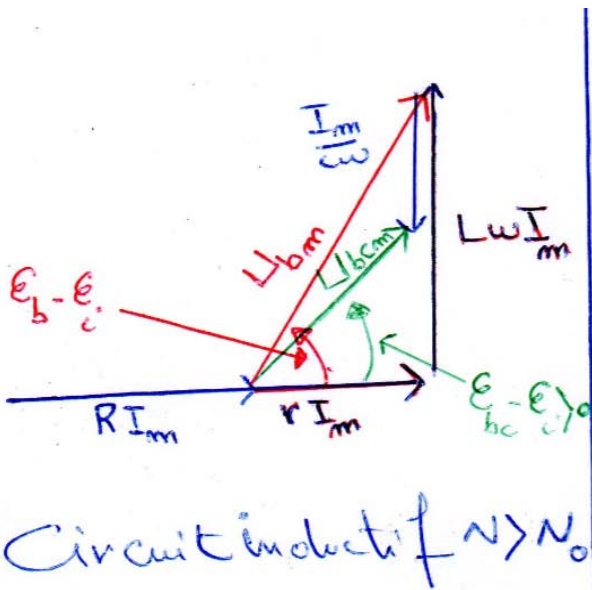 I_m
Cω
LωI_m
U_bm
U_bcm
ε_b - ε_i
RI_m
rI_m
ε_bc - ε_i > 0
Circuit inductif N > N_0